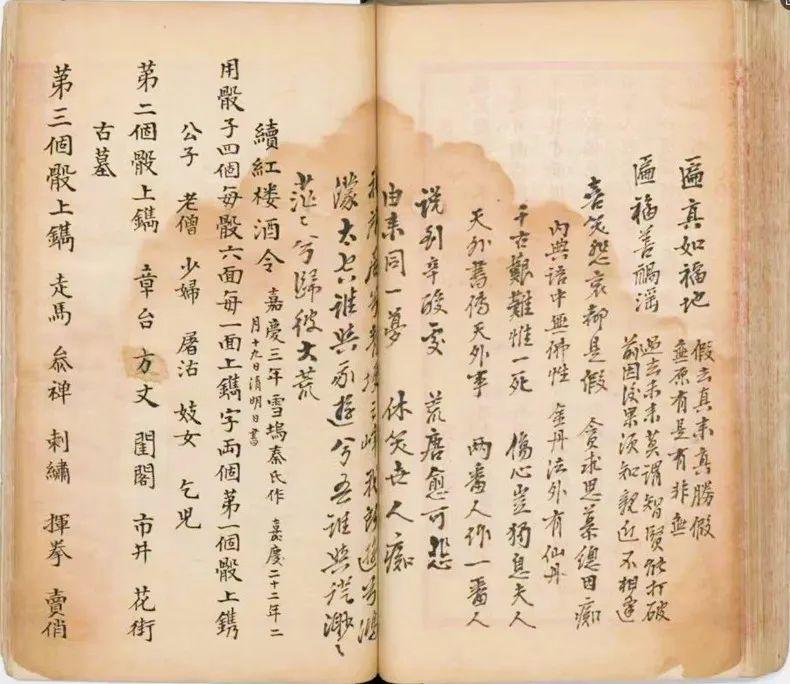 匾真如福地 假去真来真勝假
無原有是有非無
匾福善禍淫 過去未来莫謂智賢能打破
前因後果須知親近不相逢
喜笑怨哀都是假 貪求思慕總因痴
内典語中無佛性 金丹法外有仙舟
千古艱難惟一死 傷心豈獨息夫人
天外書傳天外事 两番人作一番人
说到辛酸處 荒唐愈可悲
由来同一夢 休笑世人痴
我所居兮青埂之峰我所遊兮鴻
濛太空誰與我遊兮吾誰與從渺〻
茫〻兮歸彼大荒
續紅楼酒令 嘉慶三年雪塢秦氏作 嘉慶二十二年二
月十九日清明日書
用骰子四個每骰六面每一面上鐫字両個第一個骰上鐫
公子 老僧 少婦 屠沽 妓女 乞児
第二個骰上鐫 章台 方丈 閨閣 市井 花街
古墓
第三個骰上鐫 走馬 叅禅 刺繡 揮拳 賣俏